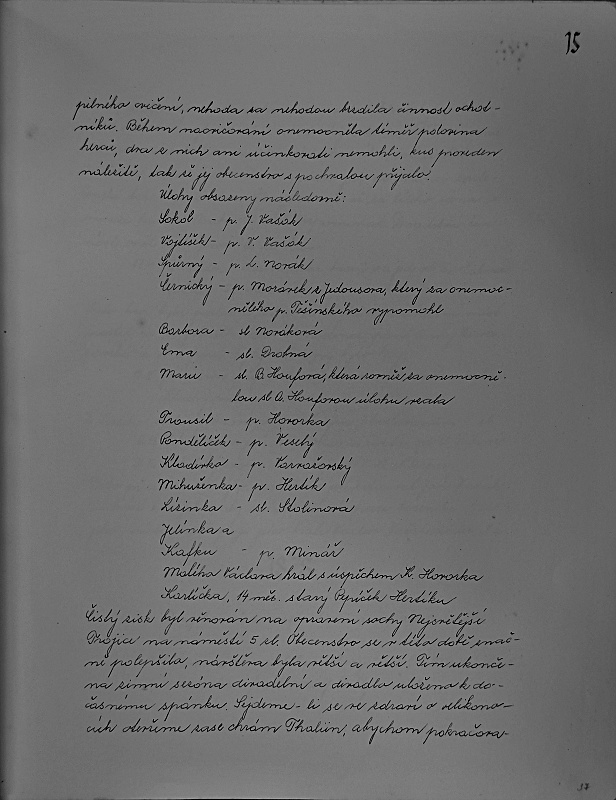 15
pilného cvičení, nehoda za nehodou brzdila činnost ochot-
níků. Během nacvičování onemocněla téměř polovina
herců, dva z nich ani účinkovati nemohli, kus proveden
náležitě, tak že jej obecenstvo s pochvalou přijalo.
Úlohy obsazeny následovně:
Sokol - p. J. Vašák
Vojtíšek - p. V. Vašák
Spurný - p. L. Novák
Černický - p. Morávek z Jedousova, který za onemoc-
nělého p. Těšínského vypomohl
Barbora - sl. Nováková
Ema - sl. Drobná
Marie - sl. B. Houfová, která rovněž za onemocně-
lou sl. A. Houfovou úlohu vzala
Trousil - p. Hovorka
Pondělíček - p. Veselý
Kladívka - p. Navražovský
Mihuženka - p. Hertík
Lízinka - sl. Stolinová
Jelínka a
Kafku - p. Minář
Malého Václava hrál s úspěchem K. Hovorka
Karlíčka, 14 měs. starý Pepíček Hertíků
Čistý zisk byl věnován na opravení sochy Nejsvětější
Trojice na náměstí 5 zl. Obecenstvo se v této době znač-
ně polepšilo, návštěva byla větší a větší. Tím ukonče-
na zimní sezóna divadelní a divadlo uloženo k do-
časnému spánku. Sejdeme-li se ve zdraví o velikono-
cích otevřeme zase chrám Thaliin, abychom pokračova-
17